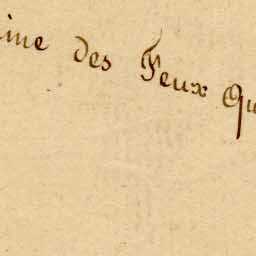 ine des Feux Qu